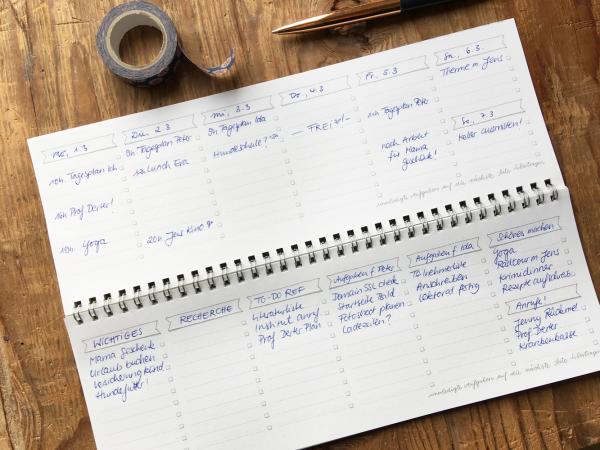 Mo, 1.3
10h Tagesplan Ich
16h Prof Derter!
19h Yoga
Die, 2.3
9h Tagesplan Peter
12h Lunch Eva
20h Jens Kino
Mi, 3.3
9h Tagesplan Ida
Hundeschule?
Do, 4.3
— FREI :) —
Fr, 5.3
11h Tagesplan Peter
nach Arbeit
für Mama
Geschenk!
Sa, 6.3
Therme m. Jens
So, 7.3
Keller ausmisten!
unerledigte Aufgaben auf die nächste Seite übertragen
WICHTIGES
Mama Geschenk
Urlaub buchen
Versicherung Kind
Hundefutter!
RECHERCHE
TO-DO REF
Literaturliste
Institut anruf
Prof. Derter Plan
Aufgaben f. Peter
Domain SSL check
Startseite Bild
Fotoshoot planen
Ladezeiten?
Aufgaben f. Ida
Teilnehmerliste
Anschreiben
Referat fertig
Schönes machen
Yoga
Radtour m Jens
Krimidinner
Rezepte aufschreib.
Anrufe!
Jenny Rückmel.
Prof Derter
Krankenkasse
unerledigte Aufgaben auf die nächste Seite übertragen